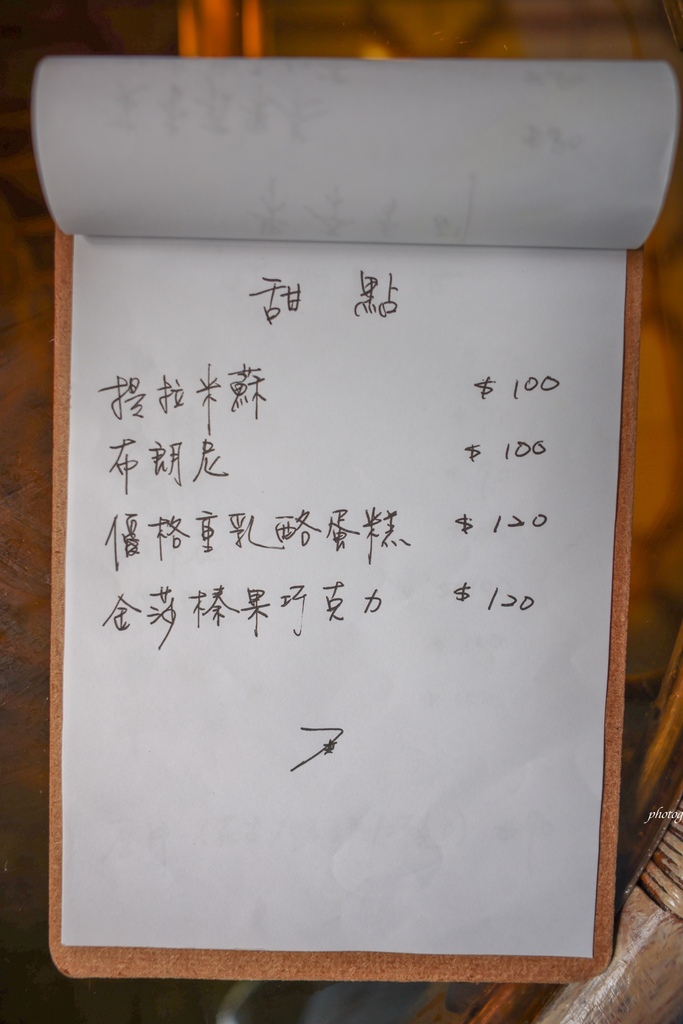 甜 點
提拉米蘇 $ 100
布朗尼 $ 100
優格重乳酪蛋糕 $ 120
金莎榛果巧克力 $ 120
photog